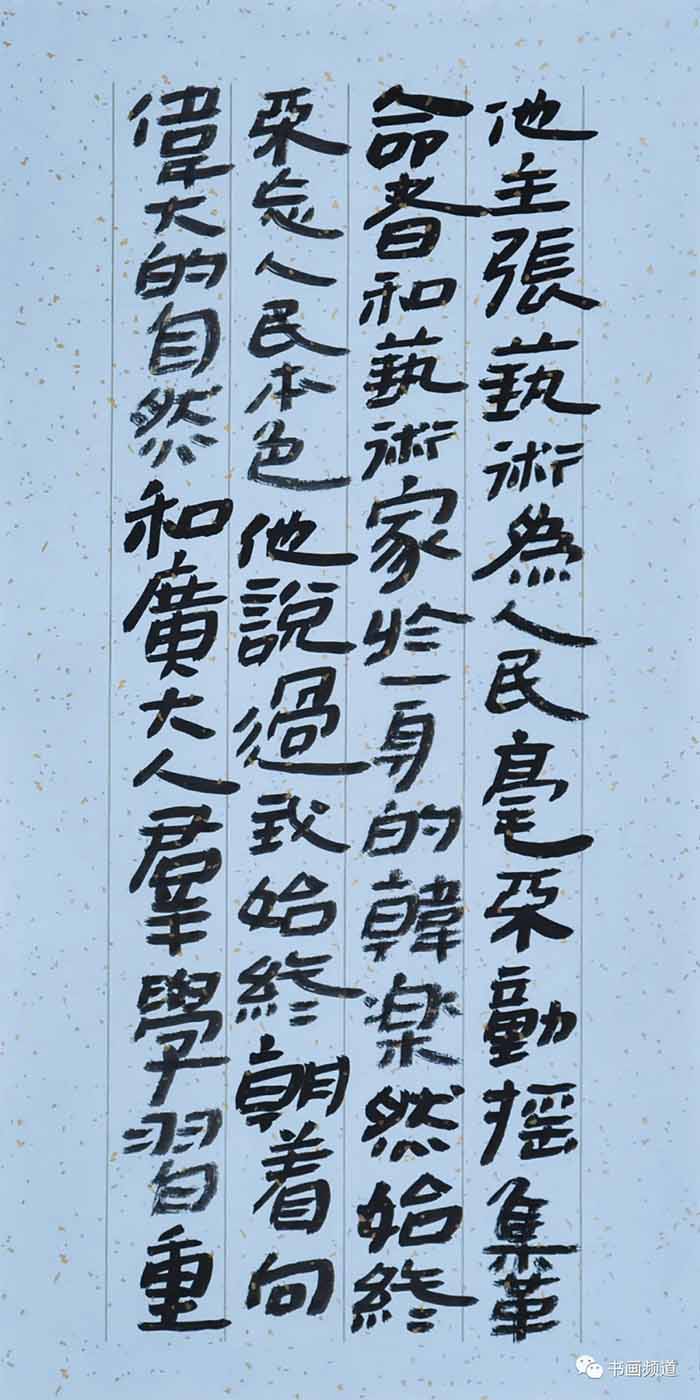 他主張藝術為人民毫不動摇集革
命者和藝術家於一身的韓樂然始終
不忘人民本色他說過我始終朝着向
偉大的自然和廣大人羣學習重
书画频道